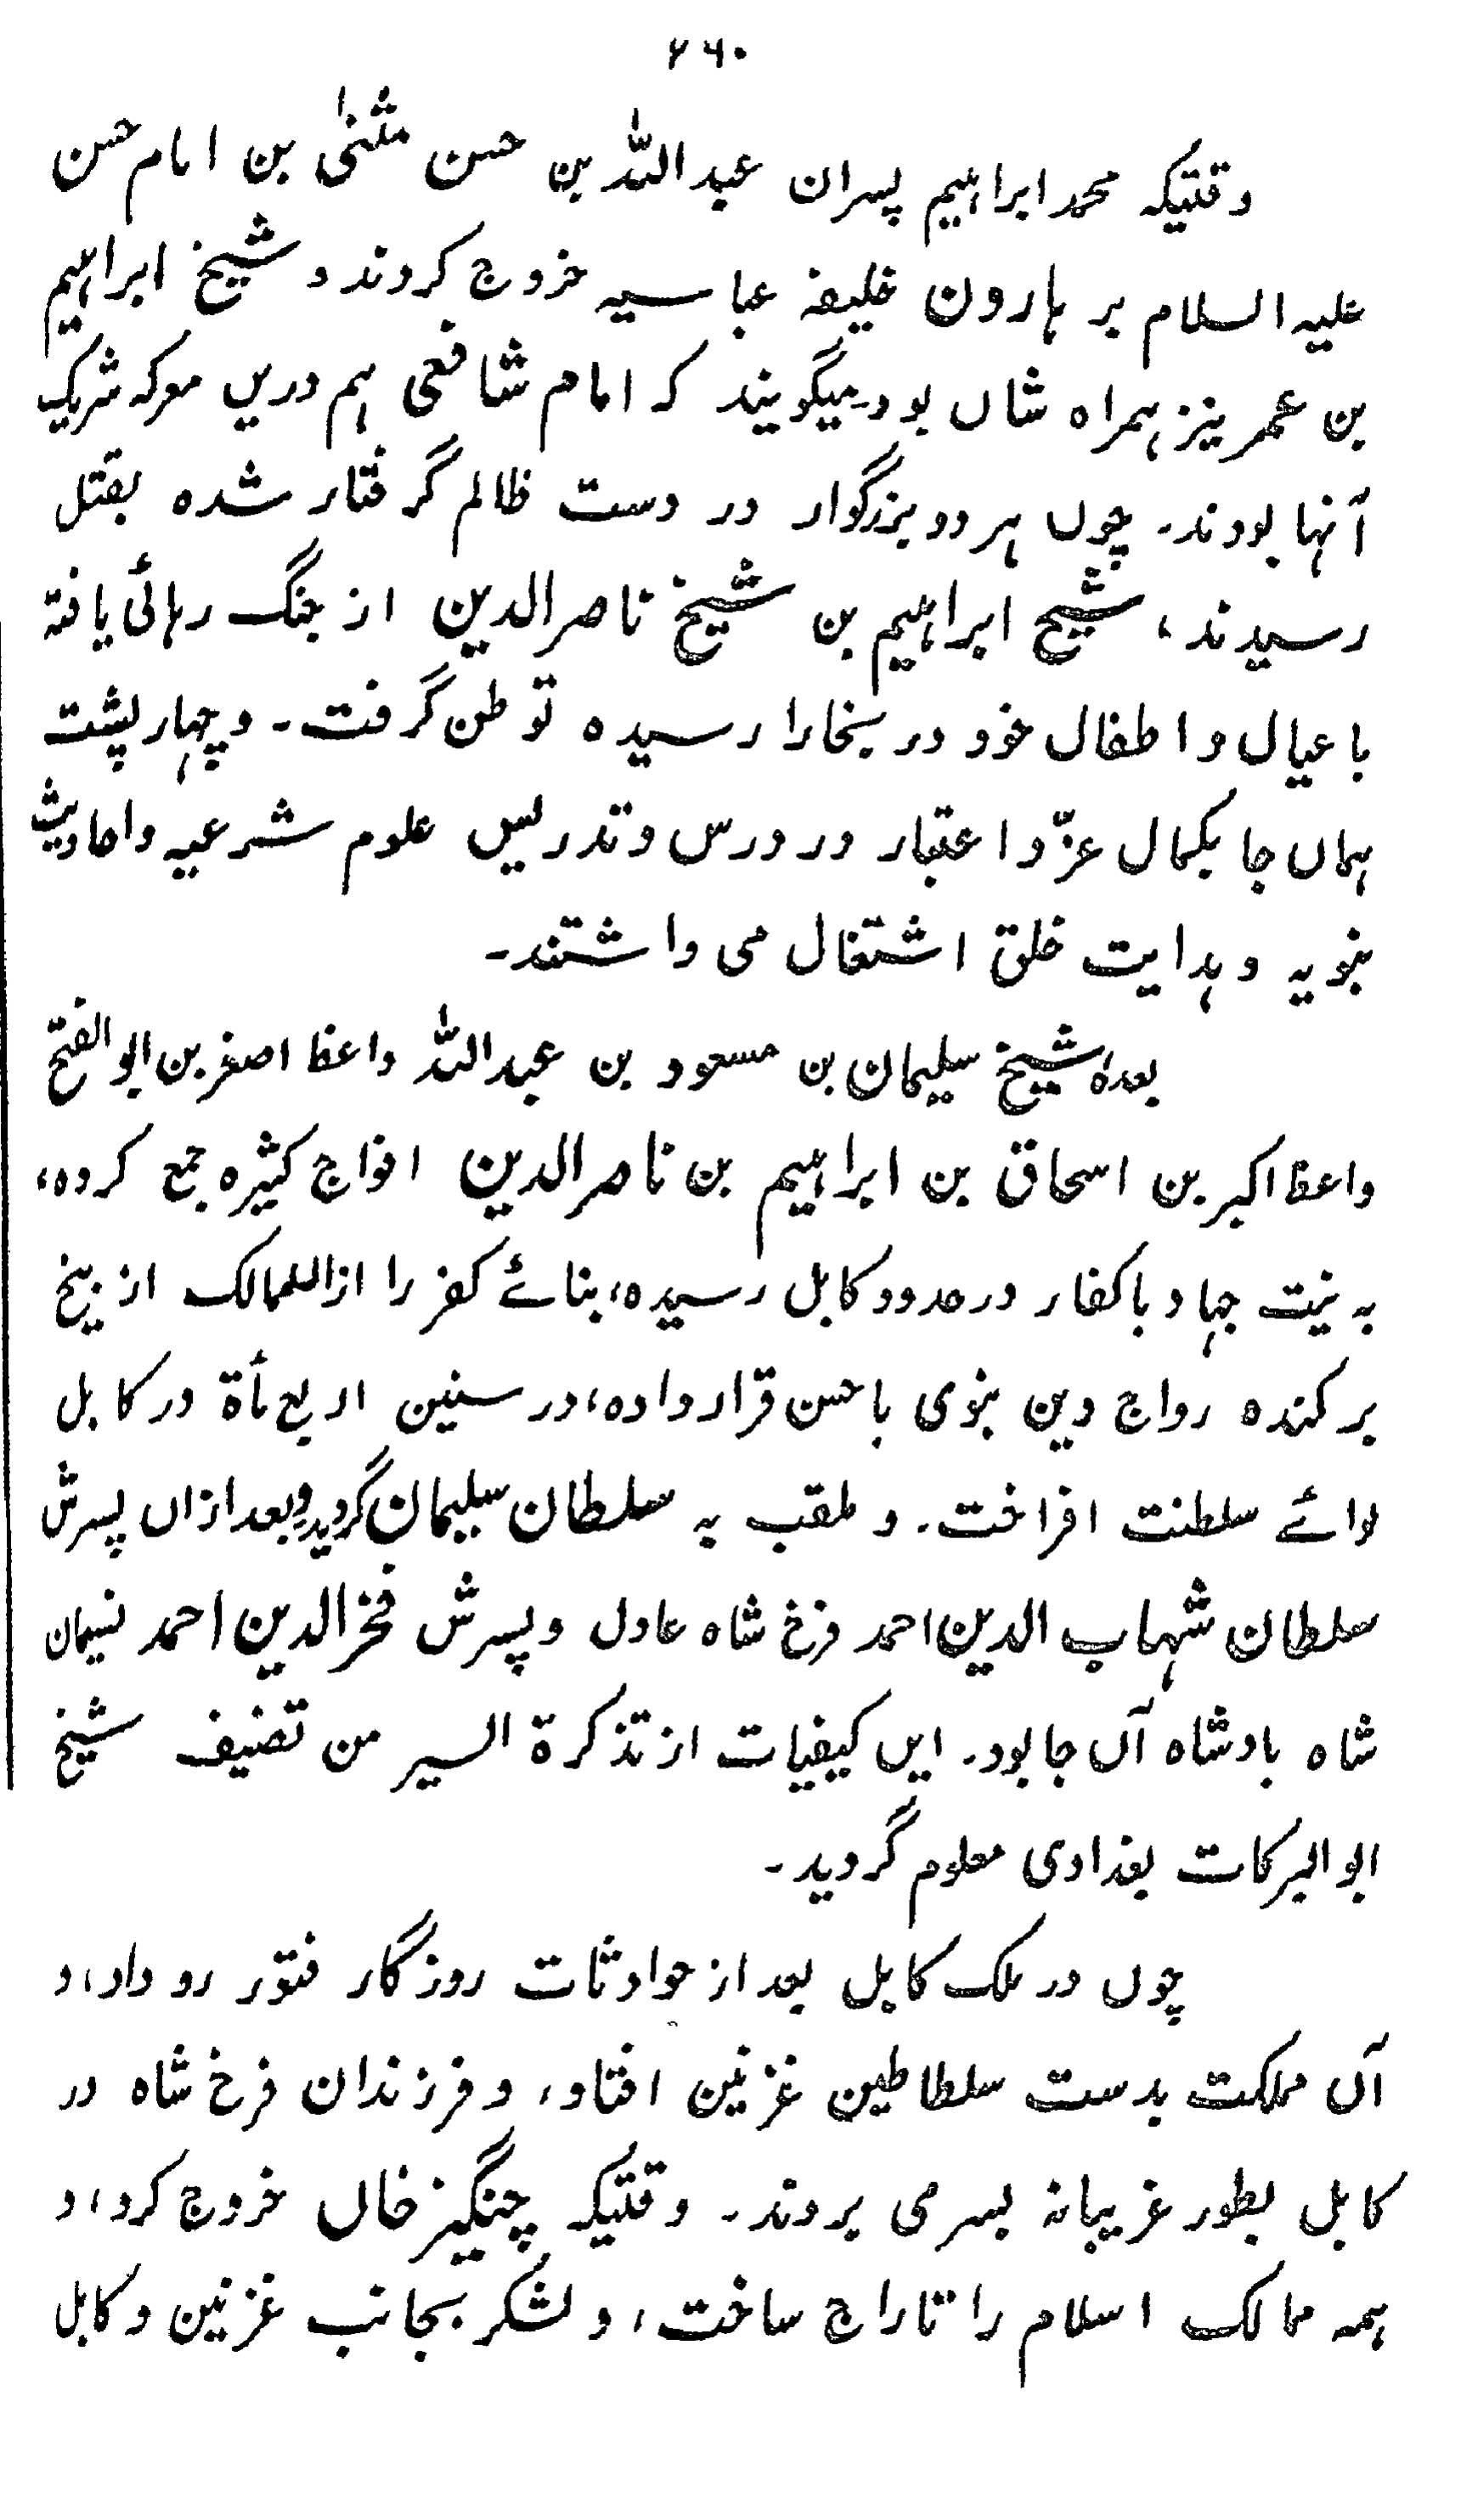 ۲۶۰
وقتیکہ محمد ابراہیم پسران عبداللہ بن حسن مثنیٰ بن امام حسن
علیہ السلام بر ہارون خلیفۂ عباسیہ خروج کردند و شیخ ابراہیم
بن عمر نیز ہمراہ شاں بود۔ میگویند کہ امام شافعی ہم دریں معرکہ شریک
آنہا بودند۔ چوں ہر دو بزرگوار در دست ظالم گرفتار شدہ بقتل
رسیدند، شیخ ابراہیم بن شیخ ناصر الدین از جنگ رہائی یافتہ
با عیال و اطفال خود در بخارا رسیدہ توطن گرفت۔ و چہار پشت
ہماں جا بکمال عزّ و اعتبار در درس و تدریس علوم شرعیہ و احادیث
نبویہ و ہدایت خلق اشتغال می داشتند۔
بعدہٗ شیخ سلیمان بن مسعود بن عبداللہ واعظ اصغر بن ابوالفتح
واعظ اکبر بن اسحاق بن ابراہیم بن ناصر الدین افواج کثیرہ جمع کردہ،
بہ نیت جہاد با کفار در حدود کابل رسیدہ، بنائے کفر را ازالممالک از بیخ
برکندہ رواج دین نبوی باحسن قرار دادہ، در سنین اربع مأۃ در کابل
لوائے سلطنت افراخت۔ و ملقب بہ سلطان سلیمان گردید و بعد ازاں پسرش
سلطان شہاب الدین احمد فرخ شاہ عادل و پسرش فخر الدین احمد نسیمان
شاہ بادشاہ آں جا بود۔ ایں کیفیات از تذکرۃ السیر من تصنیف شیخ
ابوالبرکات بغدادی معلوم گردید۔
چوں در ملک کابل بعد از حوادثات روزگار فتور رو داد، و
آں مملکت بدست سلطاطین غزنین افتاد، و فرزندان فرخ شاہ در
کابل بطور غریبانہ بسر می بردند۔ وقتیکہ چنگیز خاں خروج کرد، و
ہمہ ممالک اسلام را تاراج ساخت، و لشکر بجانب غزنین و کابل